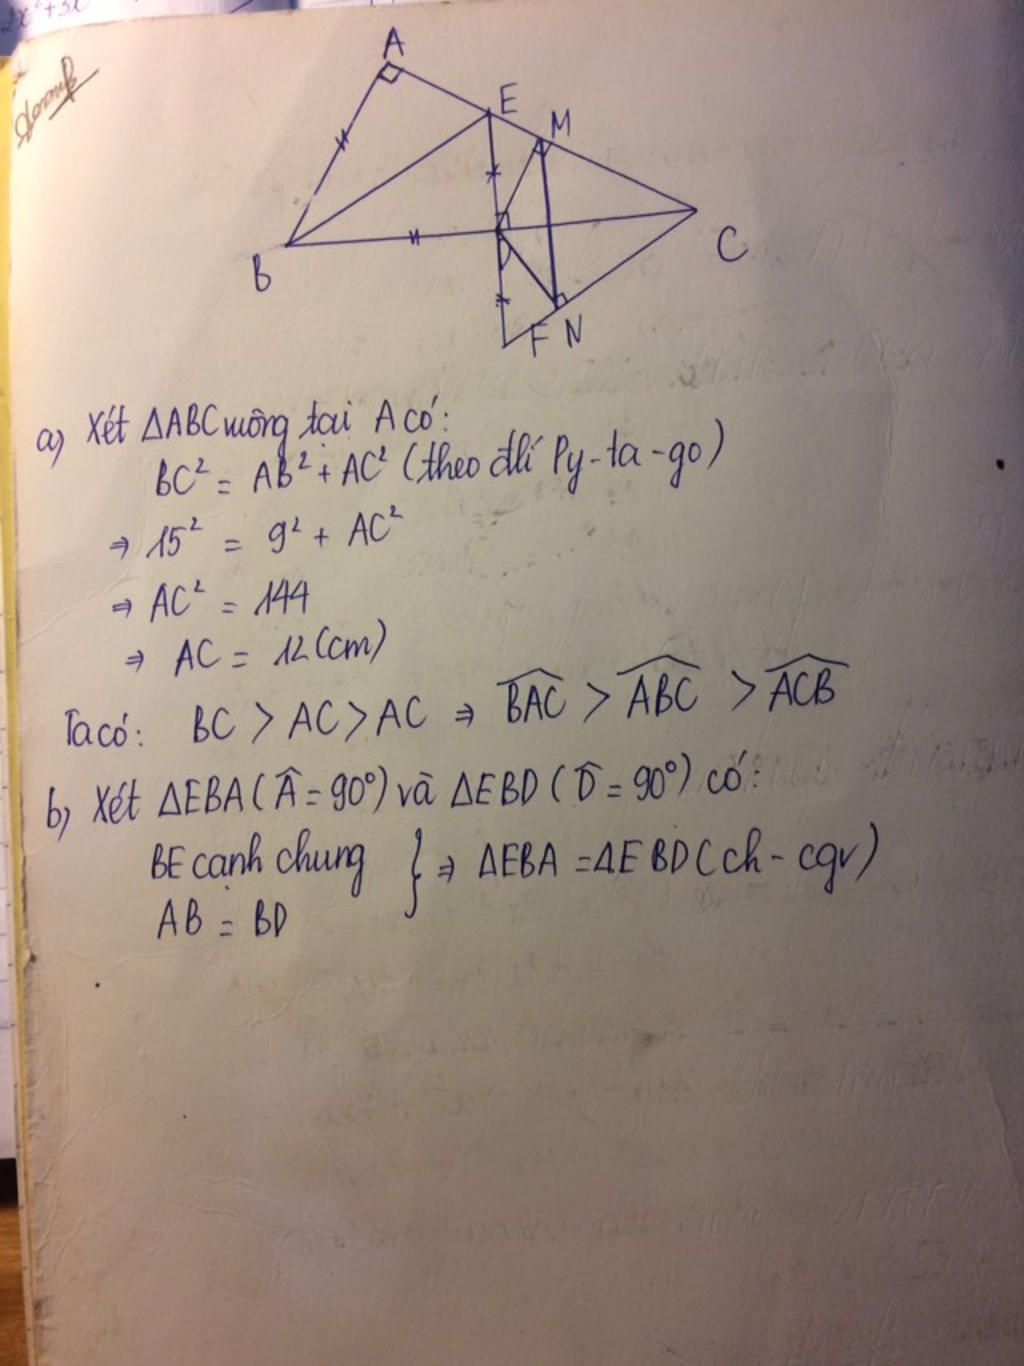 A
E
M
B
D
C
F N
a) Xét ΔABC vuông tại A có:
BC² = AB² + AC² (theo đlí Py-ta-go)
⇒ 15² = 9² + AC²
⇒ AC² = 144
⇒ AC = 12 (cm)
Ta có: BC > AC > AC ⇒ \widehat{BAC} > \widehat{ABC} > \widehat{ACB}
b) Xét ΔEBA (Â = 90°) và ΔEBD (\widehat{D} = 90°) có:
BE cạnh chung } ⇒ ΔEBA = ΔEBD (ch - cgv)
AB = BD